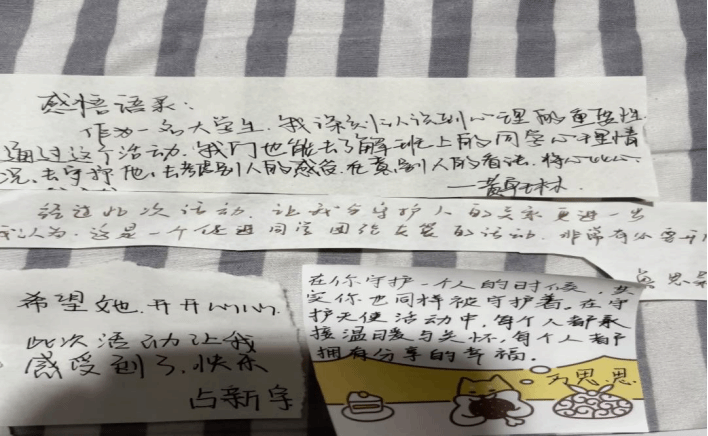 感悟语录：
作为一名大学生，我深刻认识到心理的重要性
通过这个活动，我们也能去了解班上的同学心理情
况，去守护他，去考虑别人的感受，在意别人的看法，将心比心
——黄
经过此次活动，让我与守护人的关系更进一步
我认为，这是一个促进同学团结友爱的活动，非常有必要开
思
希望她开开心心
此次活动让我
感受到了快乐
占新宇
在你守护一个人的时候，其
实你也同样被守护着。在守
护天使活动中，每个人都承
接温暖与关怀，每个人都
拥有分享的幸福。
方思思